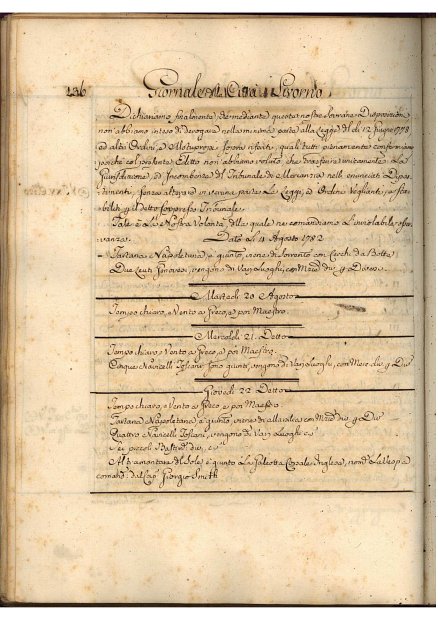 136 Giornale della Città di Livorno
Dichiariamo finalmente che mediante questa nostra Sovrana Disposizione
non abbiamo inteso di derogare nella minima parte alla Legge del dì 12 Giugno 1778
ed altri Ordini, e Motuproprj Sopra riferiti, quali tutti pienamente confermiamo
poiché col presente Editto non abbiamo voluto, che trasferire unicamente La
Giurisdizione, ed Incombenze del Tribunale di nelli enunciati Dipar-
timenti, senza alterare in veruna parte Le Leggi, ed Ordini Veglianti, e
bilite il detto soppresso Tribunale.
Tale è La Nostra Volontà, della quale ne comandiamo L'inviolabile osser-
vanza.
Dato Li 4 Agosto 1782
Tartana Napoletana, è giunta, viene di Sorrento con Cerchi da Botte
Due Leuti Genovesi, vengono di Varj Luoghi, con
Martedì 20 Agosto
Tempo chiaro, e Vento a Greco, e poi Maestro.
Mercoledì 21. Detto
Tempo chiaro, e Vento a Greco, e poi Maestro.
Cinque Navicelli Toscani sono giunti, vengono di Varj Luoghi, con Merc
Giovedì 22 Detto
Tempo chiaro, e Vento a Greco, e poi Maestro
Tartana Napoletana è giunta, viene di con
Quattro Navicelli Toscani, vengono di Varj Luoghi
Sei piccoli Bastimti
Al tramontare del Sole è giunto La Galeotta Corsale Inglese, nomta
comandta dal Capo Giorgio Smith